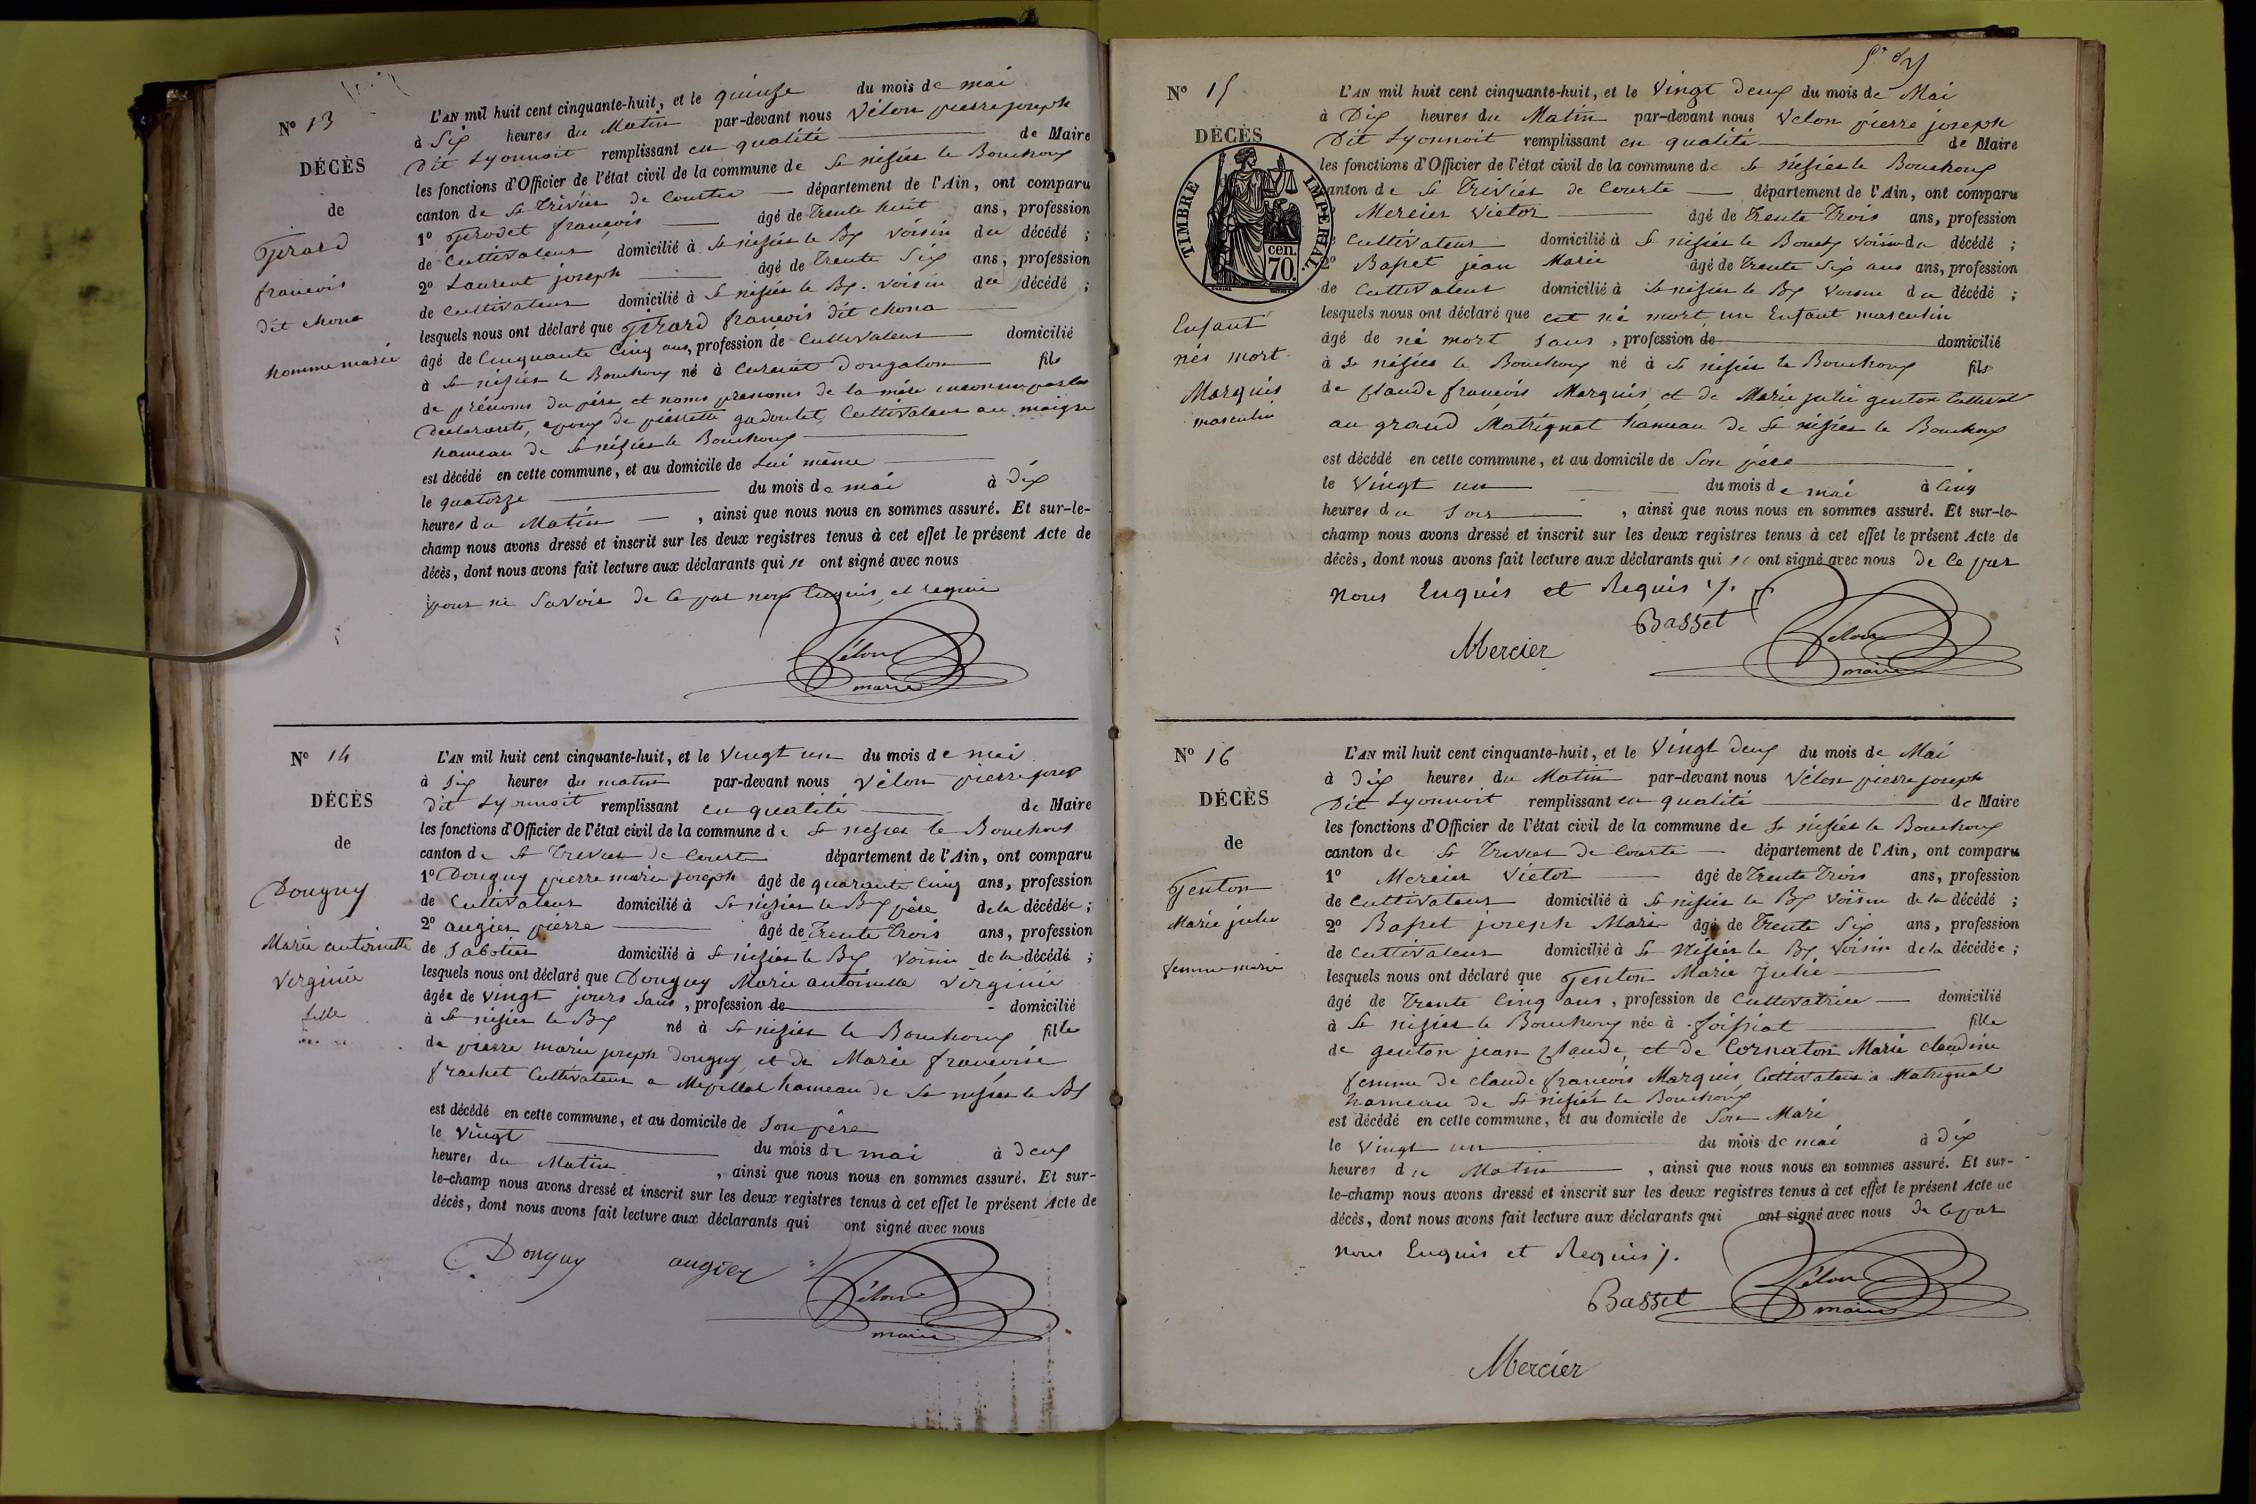 N° 13
DÉCÈS
de
Girard
francois
dit chona
homme marié
L'AN mil huit cent cinquante-huit, et le quinze du mois de mai
à Six heures du Matin par-devant nous Vélon pierre joseph
Dit Lyonnoit remplissant en qualité de Maire
les fonctions d'Officier de l'état civil de la commune de St nisier le Bouchoux
canton de St Trivier de Courte département de l'Ain, ont comparu
1° Girodet francois âgé de Trente huit ans, profession
de Cultivateur domicilié à St nisier le Bx voisin du décédé ;
2° Laurent joseph âgé de Trente Six ans, profession
de Cultivateur domicilié à St nisier le Bx. voisin du décédé ;
lesquels nous ont déclaré que Girard francois dit chona
âgé de Cinquante Cinq ans, profession de Cultivateur domicilié
à St nisier le Bouchoux né à Curciat Dongalon fils
de prénoms du père et noms prenoms de la mère inconnus par les
declarants, epoux de pierrette gadoulet, Cultivateur au maigre
hameau de St nisier le Bouchoux
est décédé en cette commune, et au domicile de Lui même
le quatorze du mois de mai à Dix
heures du Matin , ainsi que nous nous en sommes assuré. Et sur-le-
champ nous avons dressé et inscrit sur les deux registres tenus à cet effet le présent Acte de
décès, dont nous avons fait lecture aux déclarants qui ne ont signé avec nous
pour ne Savoir de Ce par nous Enquis et requis
Vélon
maire
N° 14
DÉCÈS
de
Donguy
Marie antoinette
Virginie
fille
L'AN mil huit cent cinquante-huit, et le Vingt un du mois de mai
à Six heures du matin par-devant nous Vélon pierre josep
Dit Lyonnoit remplissant en qualité de Maire
les fonctions d'Officier de l'état civil de la commune de St nisier le Bouchoux
canton de St Trivier de Courte département de l'Ain, ont comparu
1° Donguy pierre marie joseph âgé de quarante Cinq ans, profession
de Cultivateur domicilié à St nisier le Bx père de la décédée ;
2° augier pierre âgé de Trente Trois ans, profession
de Sabotier domicilié à St nisier le Bx voisin de la décédé ;
lesquels nous ont déclaré que Donguy Marie antoinette Virginie
âgée de Vingt jours Sans , profession de domicilié
à St nisier le Bx né à St nisier le Bouchoux fille
de pierre marie joseph donguy, et de Marie francoise
frachet Cultivateur a Mepillat hameau de St nisier le Bx
est décédé en cette commune, et au domicile de Son père
le Vingt du mois de mai à Deux
heures du Matin , ainsi que nous nous en sommes assuré. Et sur-
le-champ nous avons dressé et inscrit sur les deux registres tenus à cet effet le présent Acte de
décès, dont nous avons fait lecture aux déclarants qui ont signé avec nous
Donguy augier Vélon
maire
N° 15
DÉCÈS
TIMBRE IMPÉRIAL
cen.
70
Enfant
nés mort
Marquis
masculin
L'AN mil huit cent cinquante-huit, et le Vingt Deux du mois de Mai
à Dix heures du Matin par-devant nous Velon pierre joseph
Dit Lyonnoit remplissant en qualité de Maire
les fonctions d'Officier de l'état civil de la commune de St nisier le Bouchoux
canton de St Trivier de Courte département de l'Ain, ont comparu
Mercier Victor âgé de Trente Trois ans, profession
Cultivateur domicilié à St nisier le Bouchx voisin du décédé ;
2° Basset jean Marie âgé de Trente Six ans ans, profession
de Cultivateur domicilié à St nisier le Bx Voisin du décédé ;
lesquels nous ont déclaré que est né mort un Enfant masculin
âgé de né mort Sans , profession de domicilié
à St nisier le Bouchoux né à St nisier le Bouchoux fils
de Claude francois Marquis, et de Marie julie genton Cultivat
au grand Matrignat hameau de St nisier le Bouchoux
est décédé en cette commune, et au domicile de Son père
le Vingt un du mois de mai à Cinq
heures du Soir , ainsi que nous nous en sommes assuré. Et sur-le-
champ nous avons dressé et inscrit sur les deux registres tenus à cet effet le présent Acte de
décès, dont nous avons fait lecture aux déclarants qui ont signé avec nous de Ce par
nous Enquis et Requis
Mercier Basset Vélon
maire
N° 16
DÉCÈS
de
Genton
Marie julie
femme marié
L'AN mil huit cent cinquante-huit, et le Vingt Deux du mois de Mai
à Dix heures du Matin par-devant nous Vélon pierre joseph
Dit Lyonnoit remplissant en qualité de Maire
les fonctions d'Officier de l'état civil de la commune de St nisier le Bouchoux
canton de St Trivier de Courte département de l'Ain, ont comparu
1° Mercier Victor âgé de Trente Trois ans, profession
de Cultivateur domicilié à St nisier le Bx Voisin de la décédé ;
2° Basset joseph Marie âgé de Trente Six ans, profession
de Cultivateur domicilié à St Nisier le Bx Voisin de la décédée ;
lesquels nous ont déclaré que Genton Marie Julie
âgé de Trente Cinq ans , profession de Cultivatrice domicilié
à St nisier le Bouchoux née à foissiat fille
de genton jean Claude, et de Cornaton Marie claudine
femme de claude francois Marquis, Cultivateur a Matrignat
hameau de St nisier le Bouchoux
est décédé en cette commune, et au domicile de Son Mari
le Vingt un du mois de mai à Dix
heures du Matin , ainsi que nous nous en sommes assuré. Et sur-
le-champ nous avons dressé et inscrit sur les deux registres tenus à cet effet le présent Acte de
décès, dont nous avons fait lecture aux déclarants qui ont signé avec nous de Ce par
nous Enquis et Requis
Basset Vélon
maire
Mercier